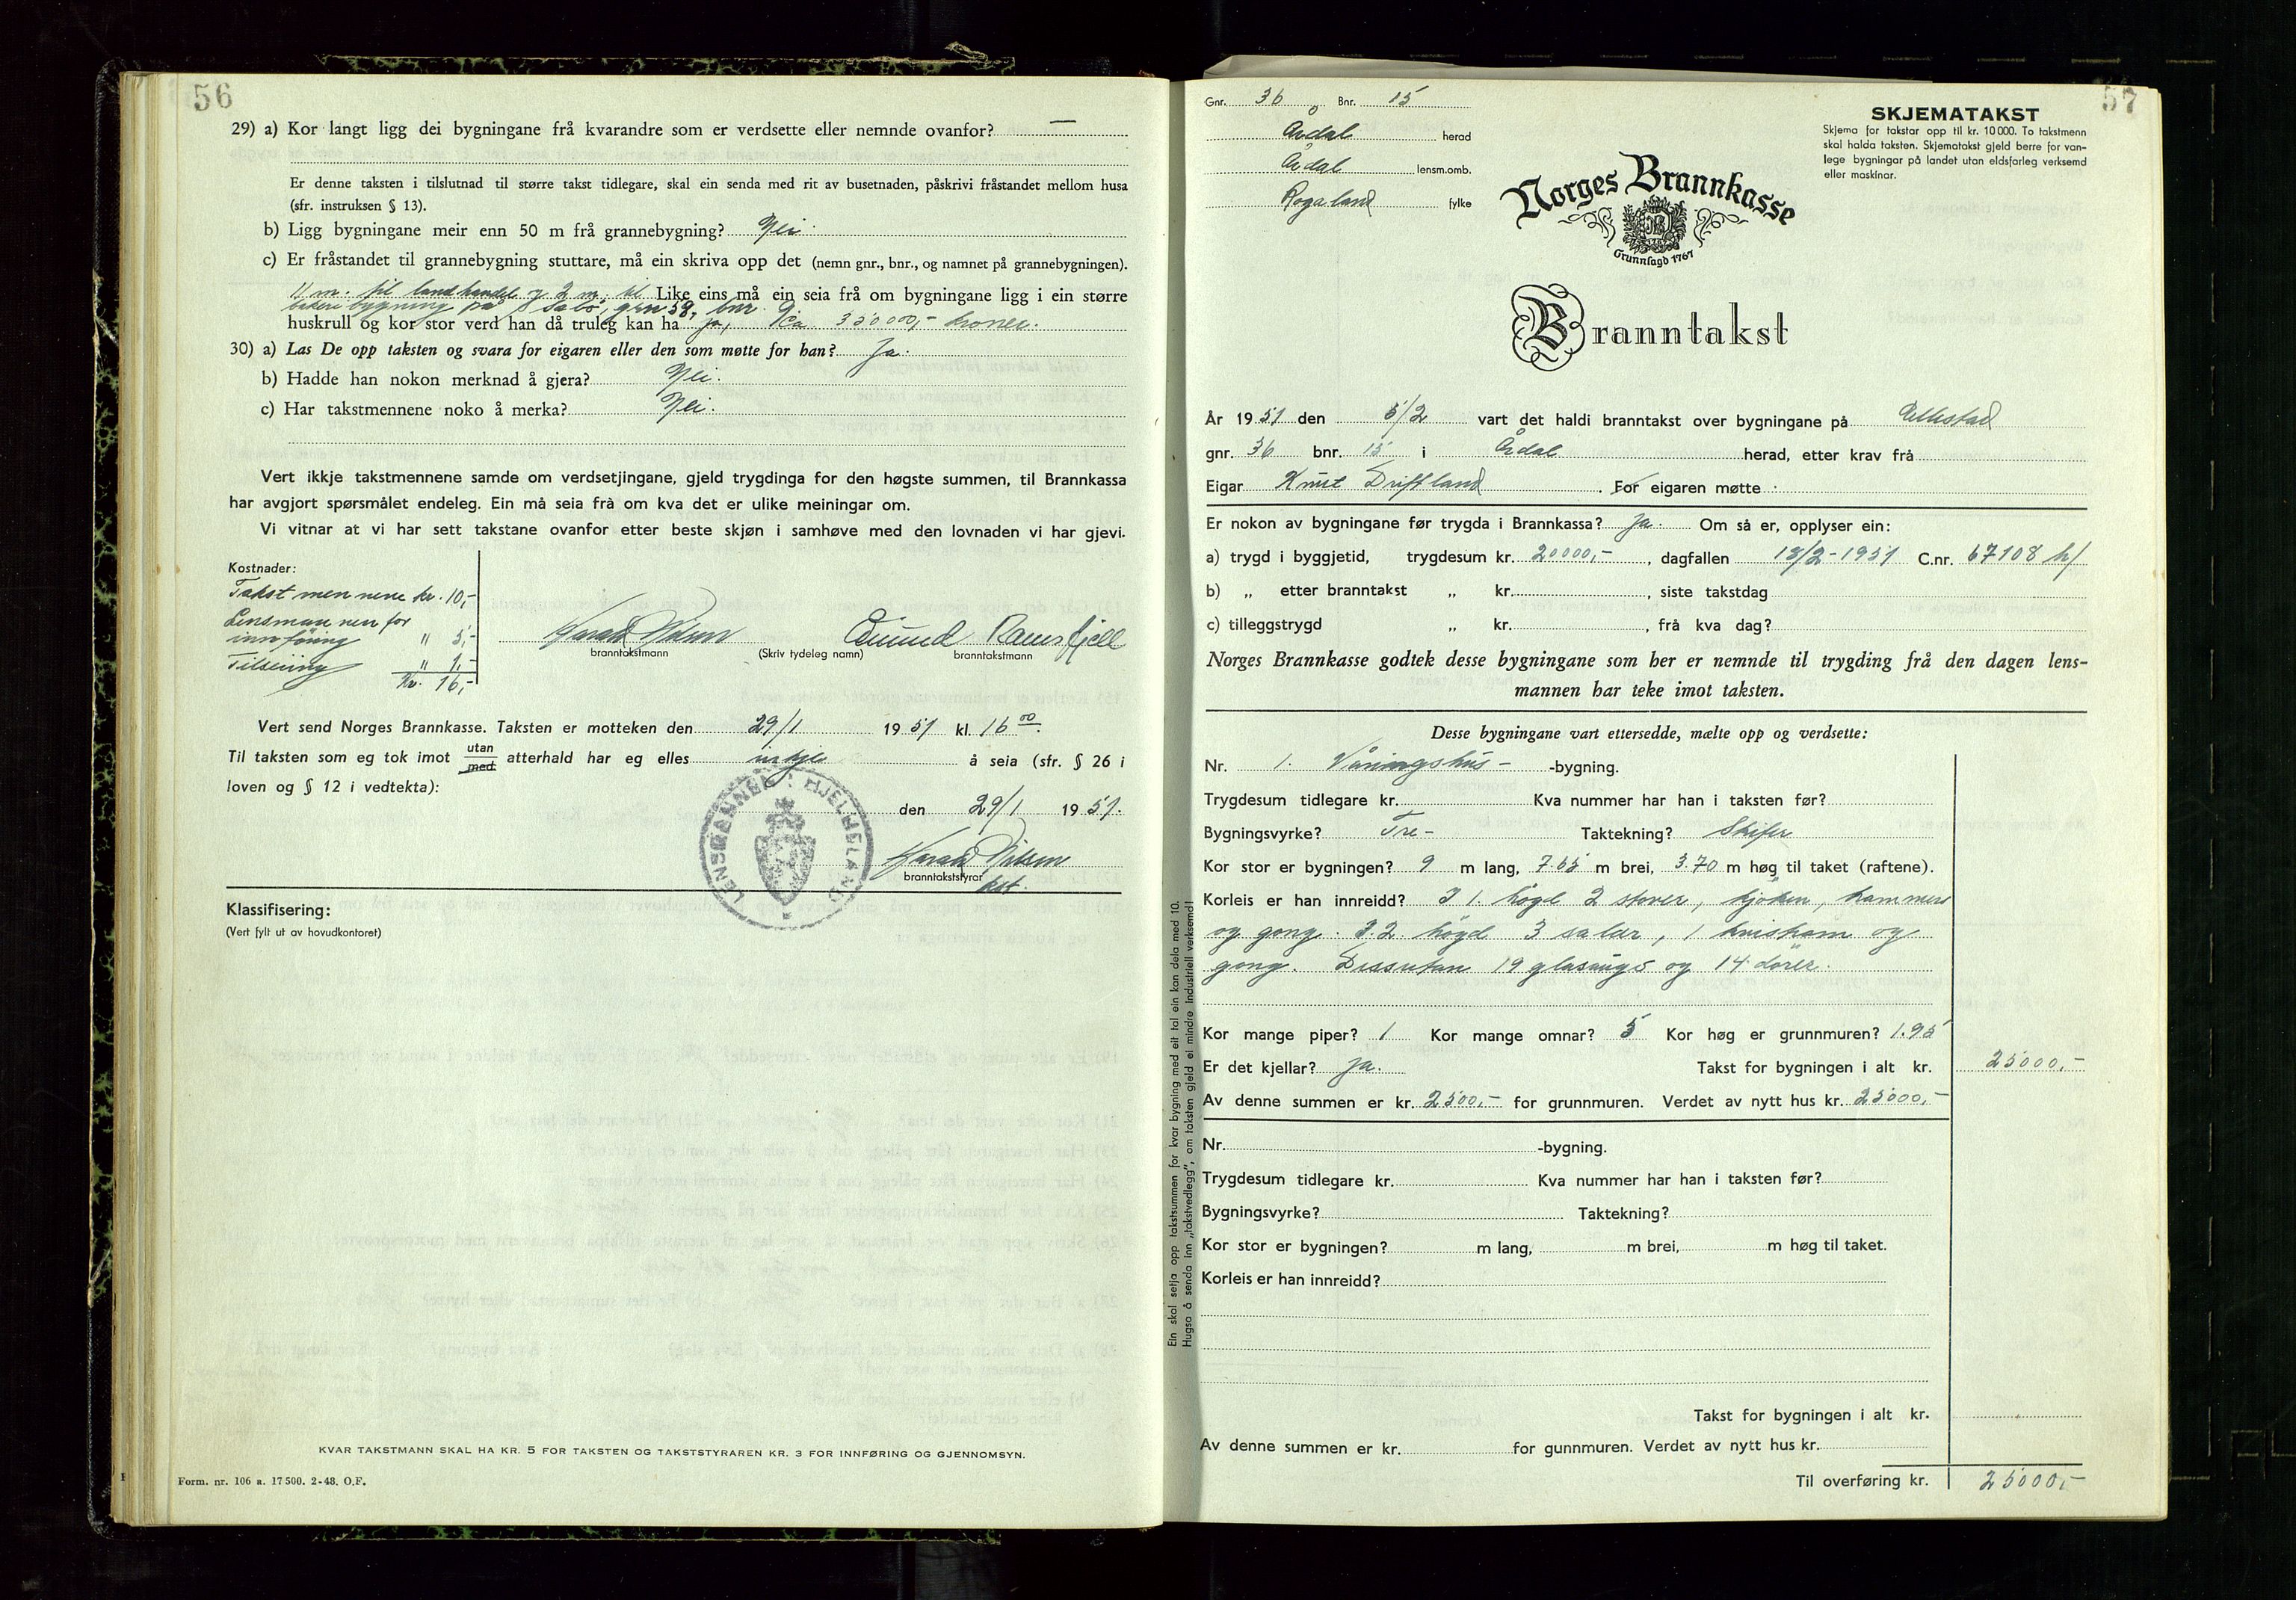 56
29) a) Kor langt ligg dei bygningane frå kvarandre som er verdsette eller nemnde ovanfor? —
Er denne taksten i tilslutnad til større takst tidlegare, skal ein senda med rit av busetnaden, påskrivi fråstandet mellom husa
(sfr. instruksen § 13).
b) Ligg bygningane meir enn 50 m frå grannebygning? Nei.
c) Er fråstandet til grannebygning stuttare, må ein skriva opp det (nemn gnr., bnr., og namnet på grannebygningen).
11 m. til landhandel og 2 m. til Like eins må ein seia frå om bygningane ligg i ein større
bygning på gnr 58, bnr. 9
huskrull og kor stor verd han då truleg kan ha ja, ca 350000,- kroner.
30) a) Las De opp taksten og svara for eigaren eller den som møtte for han? Ja.
b) Hadde han nokon merknad å gjera? Nei.
c) Har takstmennene noko å merka? Nei.
Vert ikkje takstmennene samde om verdsetjingane, gjeld trygdinga for den høgste summen, til Brannkassa
har avgjort spørsmålet endeleg. Ein må seia frà om kva det er ulike meiningar om.
Vi vitnar at vi har sett takstane ovanfor etter beste skjøn i samhøve med den lovnaden vi har gjevi.
Kostnader:
Takstmennene kr. 10,-
Lensmannen for
innføring " 5,-
Tilsening " 1,-
Kr. 16,-
Harald Nilsen
branntakstmann
(Skriv tydeleg namn)
Ramsfjell
branntakstmann
Vert send Norges Brannkasse. Taksten er motteken den 29/1 1951 kl. 16 00.
Til taksten som eg tok imot utan
med atterhald har eg elles inkje å seia (sfr. § 26 i
loven og § 12 i vedtekta):
LENSMANNEN I HJELMELAND
den 29/1 1951.
Harald Nilsen
branntakststyrar
kst.
Klassifisering:
(Vert fylt ut av hovudkontoret)
KVAR TAKSTMANN SKAL HA KR. 5 FOR TAKSTEN OG TAKSTSTYRAREN KR. 3 FOR INNFØRING OG GJENNOMSYN.
Form. nr. 106 a. 17 500. 2-48. O.F.
57
Gnr. 36 Bnr. 15
Årdal herad
Årdal lensm.omb.
Rogaland fylke
SKJEMATAKST
Skjema for takstar opp til kr. 10 000. To takstmenn
skal halda taksten. Skjematakst gjeld berre for van-
lege bygningar på landet utan eldsfarleg verksemd
eller maskinar.
Norges Brannkasse
Grunnlagd 1767
Branntakst
År 1951 den 5/2 vart det haldi branntakst over bygningane på
gnr. 36 bnr. 15 i Årdal herad, etter krav frå
Eigar Knut Driftland. For eigaren møtte
Er nokon av bygningane før trygda i Brannkassa? Ja. Om så er, opplyser ein:
a) trygd i byggjetid, trygdesum kr. 20000,-, dagfallen 18/2-1951 C.nr. 67108 h/
b) „ etter branntakst „ kr. , siste takstdag
c) tilleggstrygd „ kr. , frå kva dag?
Norges Brannkasse godtek desse bygningane som her er nemnde til trygding frå den dagen lens-
mannen har teke imot taksten.
Desse bygningane vart ettersedde, mælte opp og verdsette:
Nr. 1. Våningshus- -bygning.
Trygdesum tidlegare kr. Kva nummer har han i taksten før?
Bygningsvyrke? Tre- Taktekning? Skifer
Kor stor er bygningen? 9 m lang, 7.65 m brei, 3.70 m høg til taket (raftene).
Korleis er han innreidd? I 1. høgd 2 stover, kjøken, kammers
og gong. I 2. høgd 3 salar, 1 kvisham og
gong. Dessutan 19 glasaugo og 14 dører.
Kor mange piper? 1 Kor mange omnar? 5 Kor høg er grunnmuren? 1.95
Er det kjellar? Ja. Takst for bygningen i alt kr. 25000,-
Av denne summen er kr. 2500,- for grunnmuren. Verdet av nytt hus kr. 25000,-
Nr. -bygning.
Trygdesum tidlegare kr. Kva nummer har han i taksten før?
Bygningsvyrke? Taktekning?
Kor stor er bygningen? m lang, m brei, m høg til taket.
Korleis er han innreidd?
Takst for bygningen i alt kr.
Av denne summen er kr. for gunnmuren. Verdet av nytt hus kr.
Til overføring kr. 25000,-
Ein skal setja opp takstsummen for kvar bygning med eit tal ein kan dela med 10.
Hugsa å senda inn „takstvedlegg", om taksten gjeld ei mindre industriell verksemd!